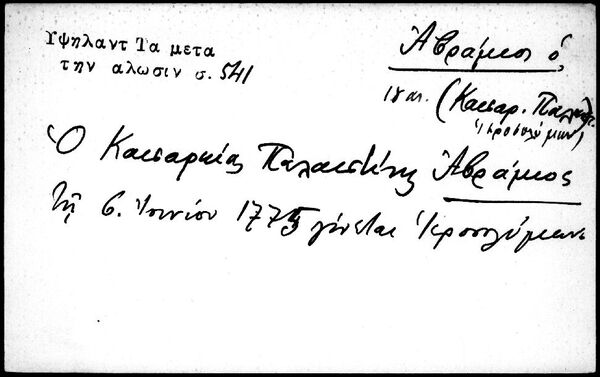 Υψηλαντ Τα μετα
την αλωσιν σ. 541
Ἀβράμιος ὁ,
18 αι. (Καισαρ. Παλαιστ.
Ἱεροσολύμων)
Ὁ Καισαρείας Παλαιστίνης Ἀβράμιος
τῇ 6. Ἰουνίου 1775 γίνεται Ἱεροσολύμων